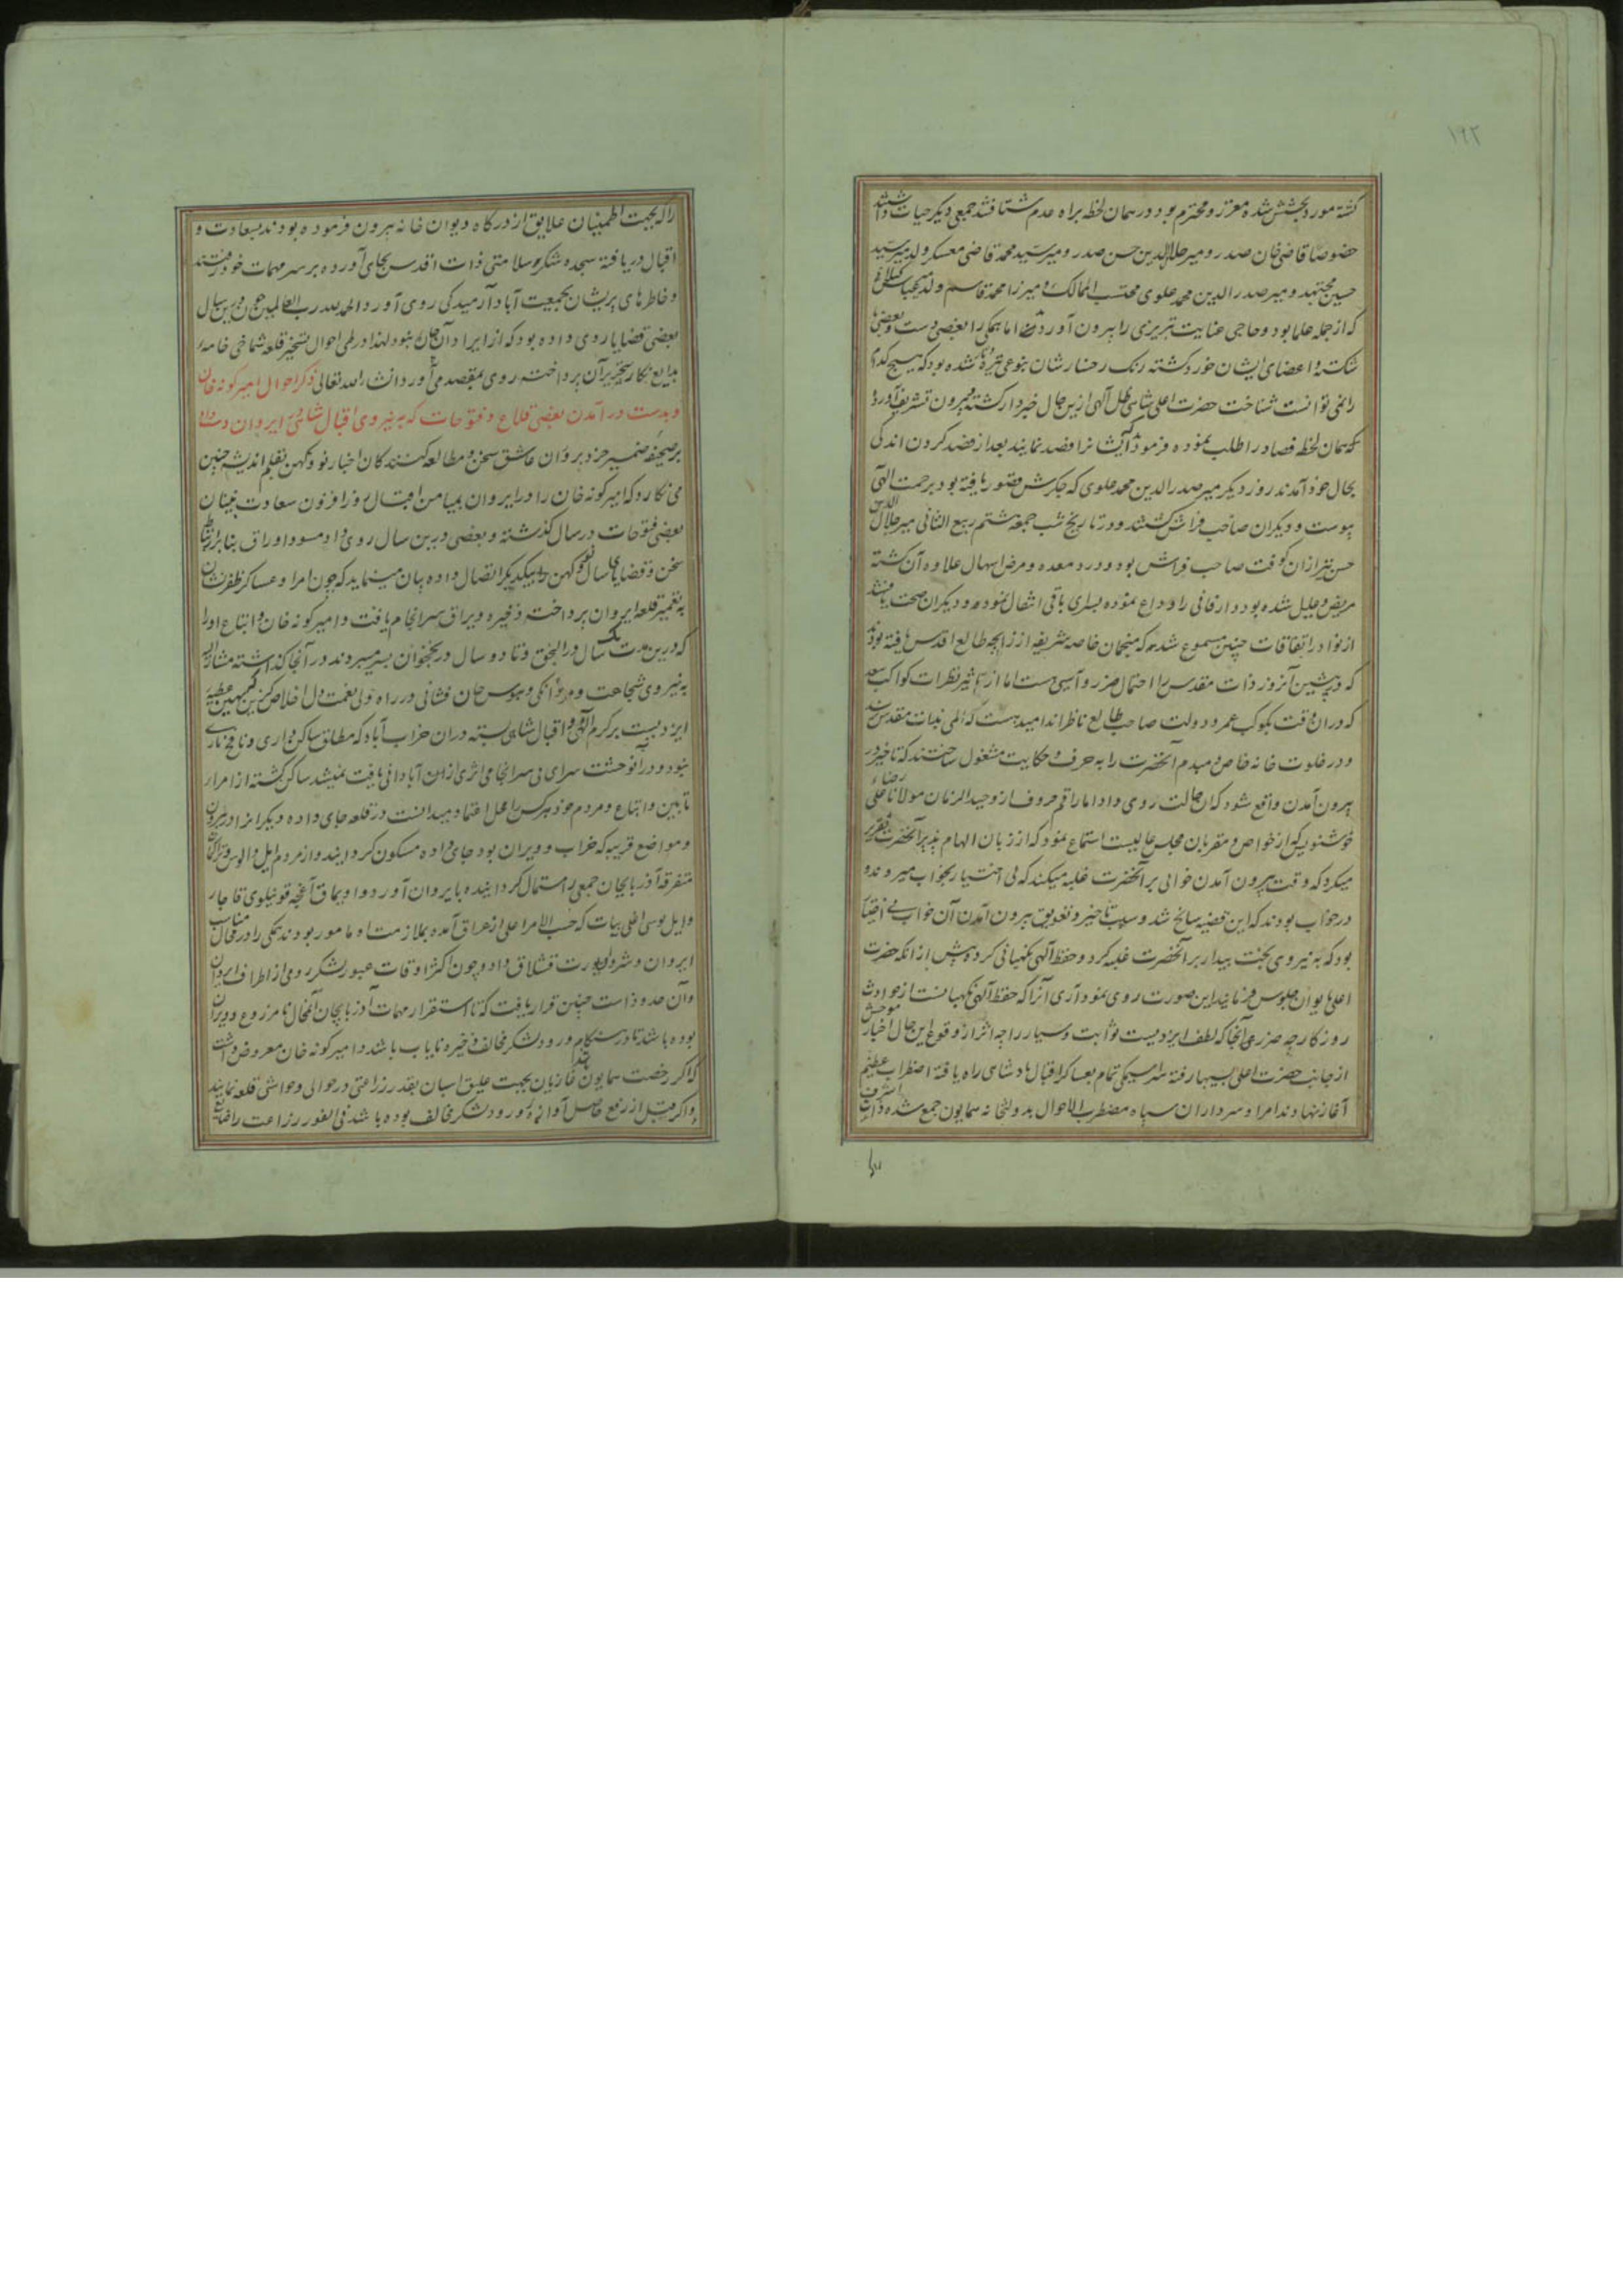 ۱۹۲
گشته مورد بخشش شده معزز و محترم بود در همان لحظه براه عدم شتافتند جمعی دیگر حیات داشتند
خصوصا قاضی خان صدر و میر جلال الدین حسن صدر و میر سید محمد قاضی معسکر ولد میر سید
حسین مجتهد و میر صدر الدین محمد علوی محتسب الممالک و میرزا محمد قاسم ولد میر
که از جمله علما بود و حاجی عنایت تبریزی را بیرون آوردند اما همکی را بعضی دست و بعضی پا
شکسته و اعضای ایشان خورد گشته رنک رخسارشان بنوعی تیره شده بود که هیچ کدام
را نمی توانست شناخت حضرت اعلی شاهی ظل آلهی ازین حال خبردار گشته بیرون تشریف آوردند
که همان لحظه فصاد را طلب نموده فرمودند که ایشانرا فصد نمایند بعد از فصد کردن اندکی
بحال خود آمدند روز دیگر میر صدر الدین محمد علوی که جکرش قصور یافته بود برحمت الهی
پیوست و دیگران صاحب فراش گشتند و در تاریخ شب جمعه هشتم ربیع الثانی میر جلال الدین
حسن نیز از آن کوفت صاحب فراش بود و درد معده و مرض اسهال علاوه آن گشته
مریض و علیل شده بود دار فانی را وداع نموده بسرای باقی انتقال نمود و دیگران صحت یافتند
از نوادر اتفاقات چنین مسموع شده که منجمان خاصه شریفه از زایچه طالع اقدس یافته بودند
که در پیشین آنروز ذات مقدس را احتمال ضرر و آسیبی هست اما از تاثیر نظرات کواکب سعد
که در آن وقت بکوکب عمر و دولت صاحب طالع ناظراند امید هست که المی بذات مقدس نرسد
و در خلوت خانه خاص و مبدم آنحضرت را به حرف و حکایت مشغول ساختند که تاخیر در
بیرون آمدن واقع شود که این حالت روی داد اما راقم حروف از وحید الزمان مولانا علی رضاء
خوشنویس که از خواص و مقربان مجلس عالیست استماع نمود که از زبان الهام پذیر آنحضرت تقریر
میکرد که وقت بیرون آمدن خوابی بر آنحضرت غلبه میکند که بی اختیار بخواب میروند و
در خواب بودند که این قضیه سانح شد و سبب تاخیر و تعویق بیرون آمدن آن خواب بی اختیار
بود که به نیروی بخت بیدار بر آنحضرت غلبه کرد و حفظ آلهی نکهبانی کرد و پیش از آنکه حضرت
اعلی بایوان جلوس فرمایند این صورت روی نمود آری آنرا که حفظ آلهی نکهبانست از حوادث
روزکار چه ضرر و آنجا که لطف ایزدیست ثوابت و سیار را چه اثر از وقوع این حال اخبار موحش
از جانب حضرت اعلی بسپاه رفته سراسیمگی تمام بعساکر اقبال پادشاهی راه یافته اضطراب عظیم
آغاز نهادند امرا و سرداران سپاه مضطرب الاحوال بدولتخانه همایون جمع شده ذات اشرف
را
را که بجهت اطمینان علایق از درکاه دیوان خانه بیرون فرموده بودند بسعادت و
اقبال دریافته سجده شکر سلامتی ذات اقدس بجای آورده بر سر مهمات خود رفتند
و خاطرهای پریشان بجمعیت آباد آرمیدگی روی آورد و الحمد لله رب العالمین چون درین سال
بعضی قضایا روی داده بود که از ایراد آن نبود لهذا در طی احوال تسخیر قلعه شماخی خامه
بدایع نکار بتحریر آن پرداخته روی بمقصد می آورد انشاء الله تعالی ذکر احوال امیر کونه خان
و بدست در آمدن بعضی قلاع و فتوحات که به نیروی اقبال شاهی در ایروان دست داد
بر صحیفه ضمیر خردپروران عاشق سخن و مطالعه کنندکان اخبار نو و کهن بقلم اندیشه چنین
می نکارد که امیر کونه خان را در ایروان بمیامن اقبال روزافزون سعادت
بعضی فتوحات در سال کذشته و بعضی درین سال روی داد مسود اوراق بنابر ارتباط
سخن و قضایای سال نو و کهن را بیکدیکر اتصال داده بیان مینماید که چون امرا و عساکر ظفرنشان
به تعمیر قلعه ایروان پرداختند ذخیره و یراق سرانجام یافت و امیر کونه خان و اتباع او را
که درین مدت یک سال در النجق و تا دو سال در نخجوان بسر میبردند در آنجا کذاشته مشار الیه
به نیروی شجاعت و مردانکی و هوس جان فشانی در راه ولی نعمت دل اخلاص کزین
ایزدیست بر کرم آلهی و اقبال شاهی بسته در آن خراب آباد که مطلق ساکن داری و نافخ ناری
نبود و در آن وحشت سرای بی سرانجامی اثری از آن آبادانی یافت نمیشد ساکن گشته از امرار
تابین و اتباع و مردم خود هرکس را محل اعتماد میدانست در قلعه جای داده دیگرانرا در بیرون
و مواضع قریبه که خراب و ویران بود جای داده مسکون کردانیدند و از مردم ایل و الوس
متفرقه آذربایجان جمعی را استمال کردانیده بایروان آورد و اویماق آغچه قوینلوی قاجار
و ایل بوسی اغلی بیات که حسب الامر اعلی از عراق آمده بملازمت او مامور بودند همکی را در محال مناسب
ایروان و شرور یورت قشلاق داد و چون اکثر اوقات عبور لشکر رومی از اطراف ایروان
و آن حدوداست چنین قرار یافت که تا استقرار مهمات آذربایجان آنمحال نا مزروع و ویران
بوده باشد تا در هنکام ورود لشکر مخالف ذخیره نایاب باشد و امیر کونه خان معروض داشت
که اکر رخصت همایون باشد غازیان بجهت علیق اسبان بقدر زراعتی در حوالی و حواشی قلعه نمایند
و اکر قبل از رفع حاصل آوازه ورود لشکر مخالف بوده باشد فی الفور زراعت را ضایع